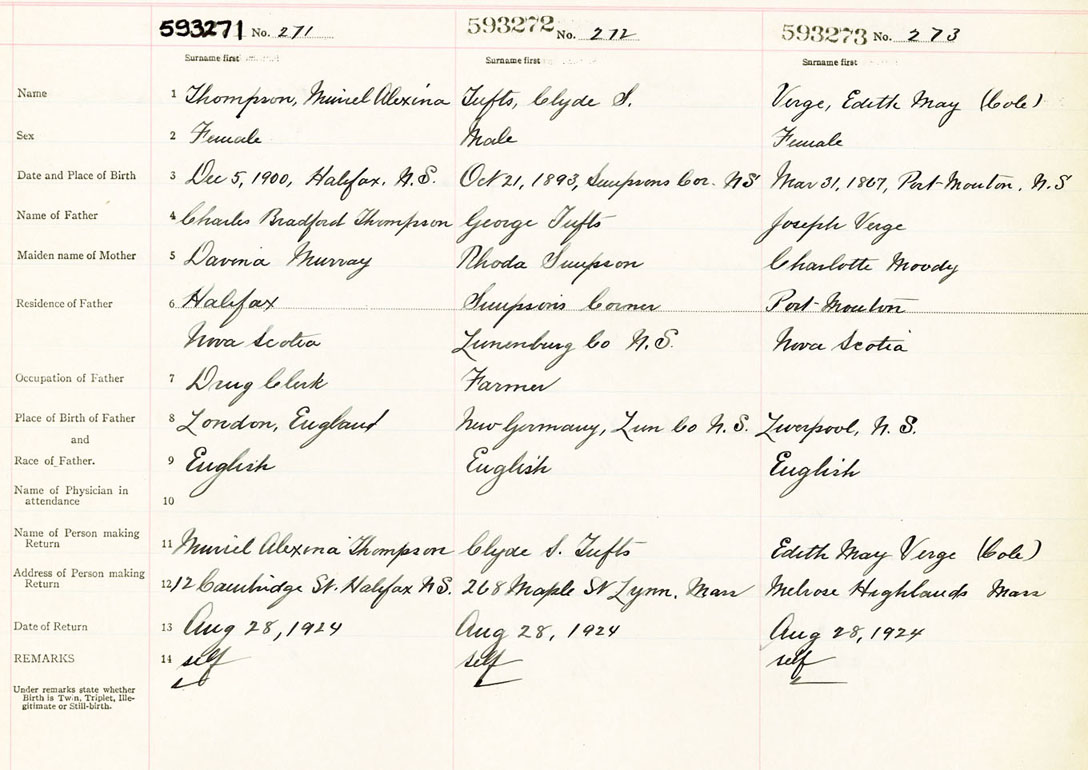 593271 No. 271 593272 No. 272 593273 No. 273
Surname first Surname first Surname first
Name 1 Thompson, Muriel Alexina Tufts, Clyde S. Verge, Edith May (Cole)
Sex 2 Female Male Female
Date and Place of Birth 3 Dec 5, 1900, Halifax, N.S. Oct 21, 1893, Simpsons Cor. NS Mar 31, 1867, Port Mouton, N.S
Name of Father 4 Charles Bradford Thompson George Tufts Joseph Verge
Maiden name of Mother 5 Davina Murray Rhoda Simpson Charlotte Moody
Residence of Father 6 Halifax Simpson's Corner Port Mouton
Nova Scotia Lunenburg Co N.S. Nova Scotia
Occupation of Father 7 Drug Clerk Farmer
Place of Birth of Father 8 London, England New Germany, Lun Co N.S. Liverpool, N.S.
and
Race of Father. 9 English English English
Name of Physician in
attendance 10
Name of Person making
Return 11 Muriel Alexina Thompson Clyde S. Tufts Edith May Verge (Cole)
Address of Person making
Return 12 12 Cambridge St. Halifax N.S. 268 Maple St Lynn, Mass Melrose Highlands Mass
Date of Return 13 Aug 28, 1924 Aug 28, 1924 Aug 28, 1924
REMARKS 14 self self self
Under remarks state whether
Birth is Twin, Triplet, Ille-
gitimate or Still-birth.